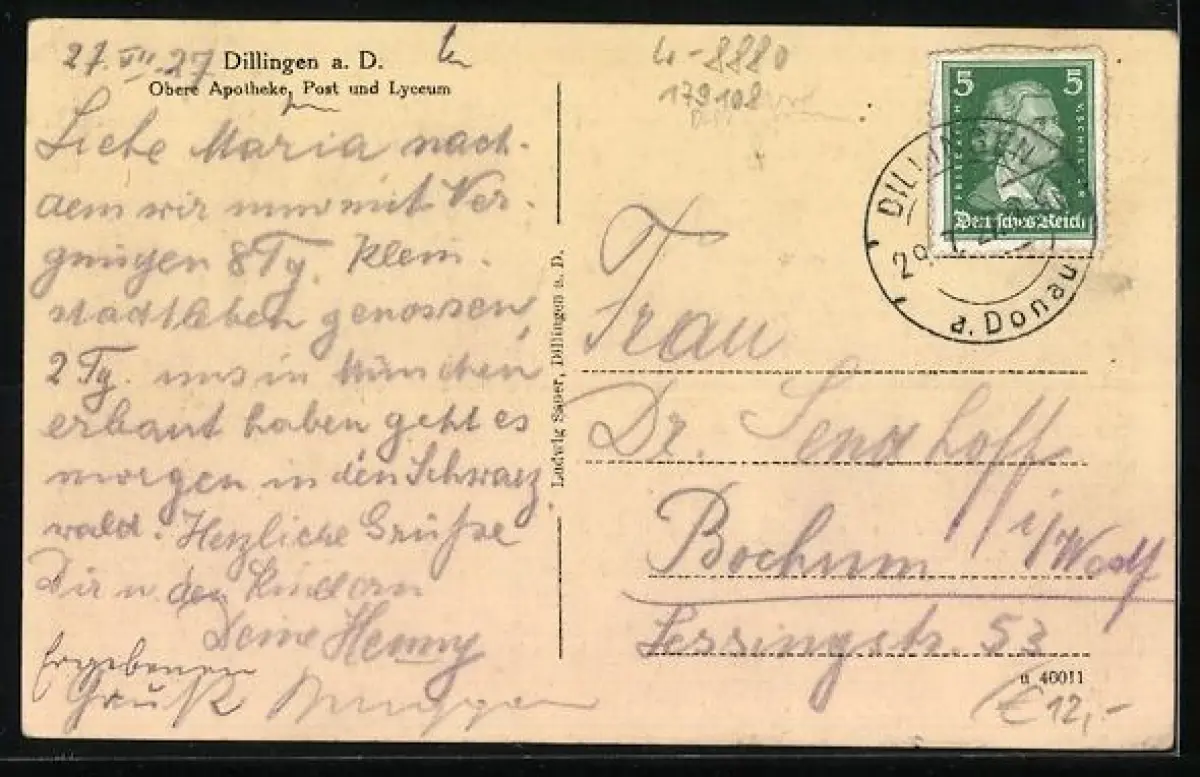 27. VII. 27
Dillingen a. D.
Obere Apotheke, Post und Lyceum
Liebe Maria nach-
dem wir nun mit Ver-
gnügen 8 Tg. Klein-
stadtleben genossen,
2 Tg. uns in München
erbaut haben geht es
morgen in den Schwarz
wald. Herzliche Grüße
Dir u den Kindern
Deine Henny
Ergebenen
Gruß
Ludwig Saper, Dillingen a. D.
4-8880
179108
5 5
FRIEDRICH V. SCHILLER
Deutsches Reich
DILLINGEN
29. 7. 27
a. Donau
Frau
Dr. Sendhoff
Bochum i/Westf
Lessingstr. 53
u 40011
€ 12,-